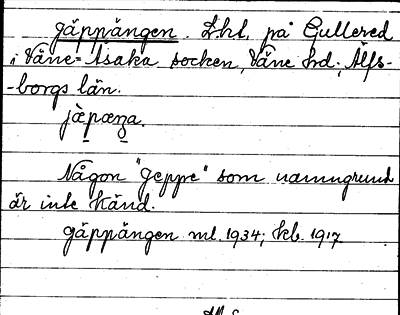 Jäppängen. Lht, på Gullered
i Väne-Åsaka socken, Väne hd; Älfs-
-borgs län.
jàpæŋa.
Någon "Jeppe" som namngrund
är inte känd.
gäppängen ml. 1934; kb. 1917